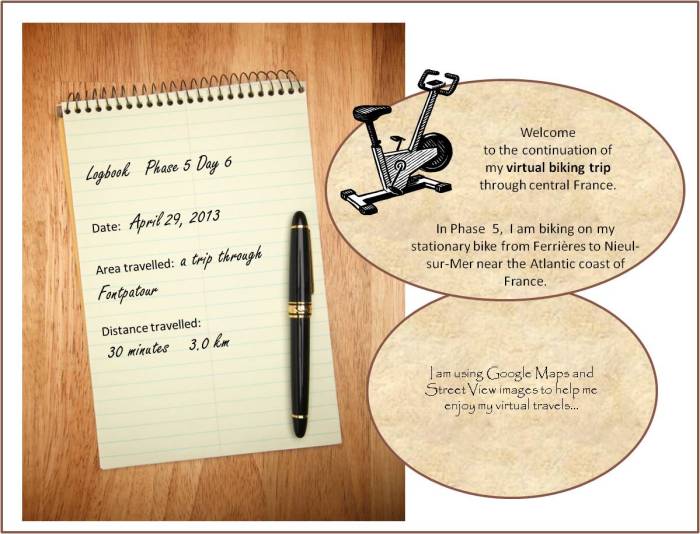 Logbook Phase 5 Day 6
Date: April 29, 2013
Area travelled: a trip through
Fontpatour
Distance travelled:
30 minutes 3.0 km
Welcome
to the continuation of
my virtual biking trip
through central France.
In Phase 5, I am biking on my
stationary bike from Ferrières to Nieul-
sur-Mer near the Atlantic coast of
France.
I am using Google Maps and
Street View images to help me
enjoy my virtual travels...